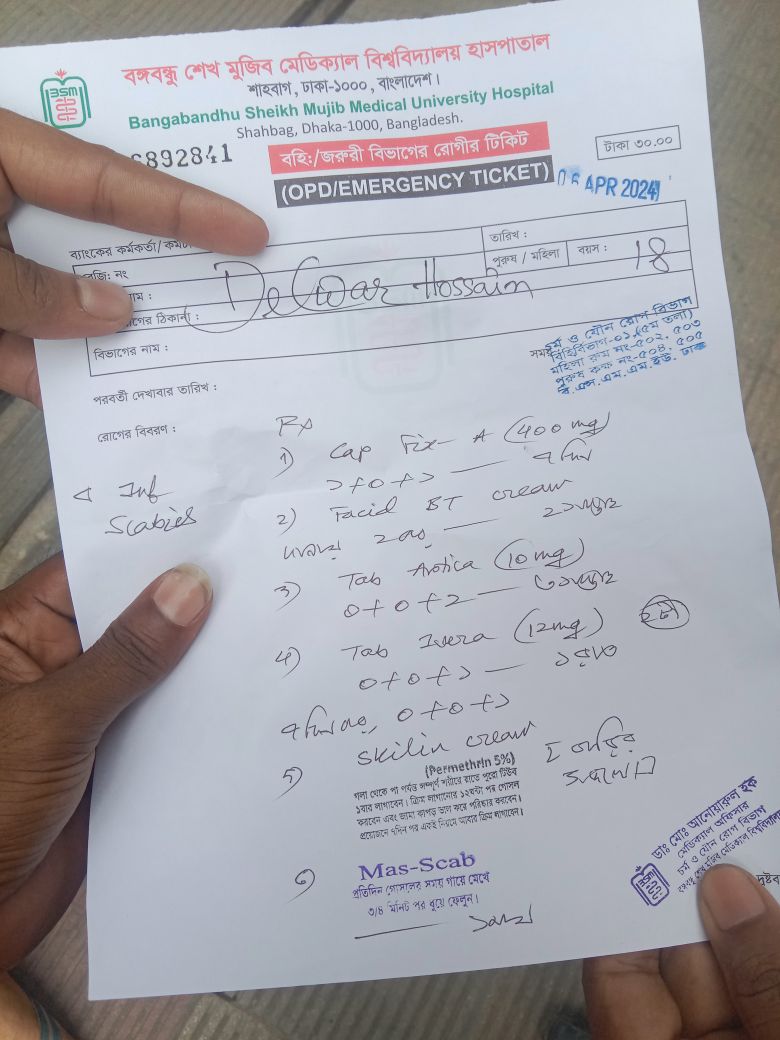 বঙ্গবন্ধু শেখ মুজিব মেডিক্যাল বিশ্ববিদ্যালয় হাসপাতাল
শাহবাগ, ঢাকা-১০০০, বাংলাদেশ।
Bangabandhu Sheikh Mujib Medical University Hospital
Shahbag, Dhaka-1000, Bangladesh.
BSM
6892841
বহিঃ/জরুরী বিভাগের রোগীর টিকিট
টাকা ৩০.০০
(OPD/EMERGENCY TICKET)
06 APR 2024
ব্যাংকের কর্মকর্তা/
তারিখ :
রেজি: নং
পুরুষ / মহিলা
বয়স : 18
নাম : Delwar Hossain
ঠিকানা :
বিভাগের নাম :
সময়
চর্ম ও যৌন রোগ বিভাগ
বহির্বিভাগ-০১,(৫ম তলা)
মহিলা রুম নং-৫০২, ৫০৩
পুরুষ কক্ষ নং-৫০৪, ৫০৫
বি.এস.এম.এম.ইউ. ঢাকা
পরবর্তী দেখাবার তারিখ :
রোগের বিবরণ :
Inf
Scabies
Rx
1) Cap Fix-A (400 mg)
১+০+১ — ৭ দিন
2) Facid BT cream
২ বার — ২ সপ্তাহ
3) Tab Arotica (10 mg)
0+0+2 — ৩ সপ্তাহ
4) Tab Ivera (12 mg) ২টা
0+0+১ —
৭ দিন পর, 0+0+১
৫) Skilin cream
(Permethrin 5%)
গলা থেকে পা পর্যন্ত সম্পূর্ণ শরীরে রাতে পুরো টিউব
১বার লাগাবেন। ক্রিম লাগানোর ১২ঘন্টা পর গোসল
করবেন এবং জামা কাপড় ভাল করে পরিষ্কার করবেন।
প্রয়োজনে ৭দিন পর একই নিয়মে আবার ক্রিম লাগাবেন।
বাড়ির
৬) Mas-Scab
প্রতিদিন গোসলের সময় গায়ে মেখে
৩/৪ মিনিট পর ধুয়ে ফেলুন।
ডাঃ মোঃ আনোয়ারুল হক
মেডিক্যাল অফিসার
চর্ম ও যৌন রোগ বিভাগ
বঙ্গবন্ধু শেখ মুজিব মেডিক্যাল